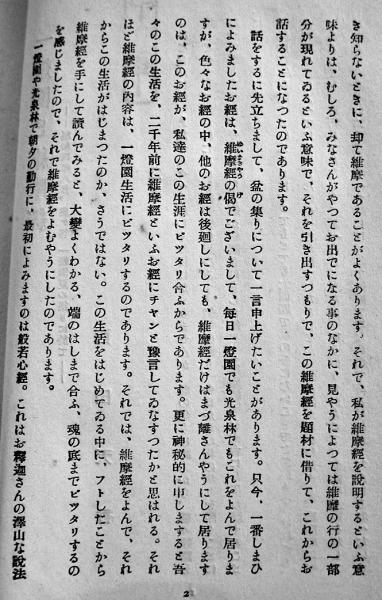 き知らないときに、却て維摩であることがよくあります。それで、私が維摩經を說明するといふ意
味よりは、むしろ、みなさんがやつてお出でになる事のなかに、見やうによつては維摩の行の一部
分が現れてゐるといふ意味で、それを引き出すつもりで、この維摩經を題材に借りて、これからお
話することになつたのであります。
話をするに先立ちまして、盆の集りについて一言申上げたいことがあります。只今、一番しまひ
によみましたお經は、維摩經の偈でございまして、每日一燈園でも光泉林でもこれをよんで居りま
すが、色々なお經の中、他のお經は後廻しにしても、維摩經だけはまづ離さんやうにして居ります
のは、このお經が、私達のこの生涯にピツタリ合ふからであります。更に神秘的に申しますると吾
々のこの生活を、二千年前に維摩經といふお經にチャンと豫言してゐなすつたかと思はれる。それ
ほど維摩經の內容は、一燈園生活にピツタリするのであります。それでは、維摩經をよんで、それ
からこの生活がはじまつたのか、さうではない。この生活をはじめてゐる中に、フトしたことから
維摩經を手にして讀んでみると、大變よくわかる、端のはしまで合ふ、魂の底までピツタリするの
を感じましたので、それで維摩經をよむやうにしたのであります。
一燈園や光泉林で朝夕の勤行に、最初によみますのは般若心經。これはお釋迦さんの澤山な說法
2